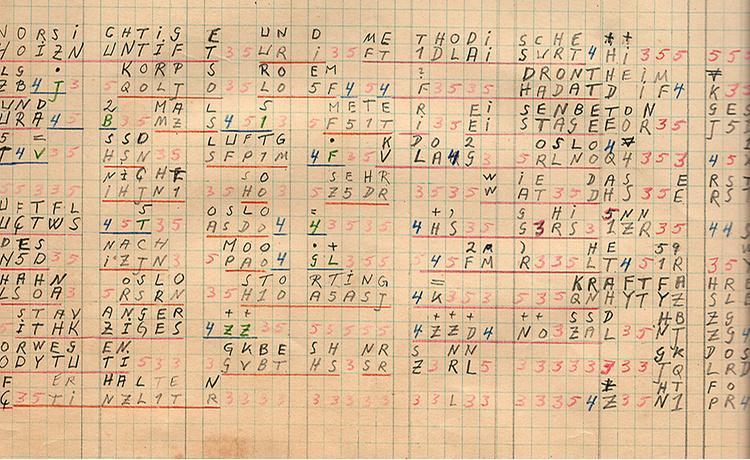 VORSi CHTiG E UND METHODi SCHE ++
HOIZN UNTIF T35UR i35FT 1DLAi SVRT4 Hi355 55
LG . KORP S RO EM ? DRONTHEIM
ZB4J3 5QOLT O35LO 5F454 F3535 HADAT DIF4 K3
UND 2 MAL 5 METE R Ei SENBETON GE
URA45 B35MZ S4513 5F51T i35Ei STAGE EOR35 J5
5 = SSD LUFTG . K DO 2 OSLO
T4V35 HSN35 SFP1M 4F35V LA4G3 5RLNO Q4353 45
NiCHT SO SEHR W iE DAS E RST
55335 iHTN1 35HO3 5Z5DR 3535W AT35 DHS35E RS
UFTFL 5 OSLO = +, G Hi 5NN
UGTWS 45T35 ASDD4 43535 4HS35 G3RS1 3ZR35 44
DES NACH MOO . + 2A ) HE 59
N5D35 iZTN3 5PAO4 GL355 45FM R335LT451R 35
HAHN OSLO STO RTING = KRAFTFA HRE
LSOA3 5RSRN 35HIO ASASJ 4K353 535QNHYTYZ SL
STAV ANGER ++ ++ ++ SSD HB ZG
SiTHK ZIGES 4ZZ35 55555 4ZZD4 NO3ZAL35NT ZG4
ORWEG EN. GKBE SH NR S NN GK DOS
ODYTU Ti533 GVBT HS3SR Z3RL5 TQ LRD
F ER HALTE N HT FO
35Ti NZL1T R3333 33333 33L33 3354Z35N1 PR4